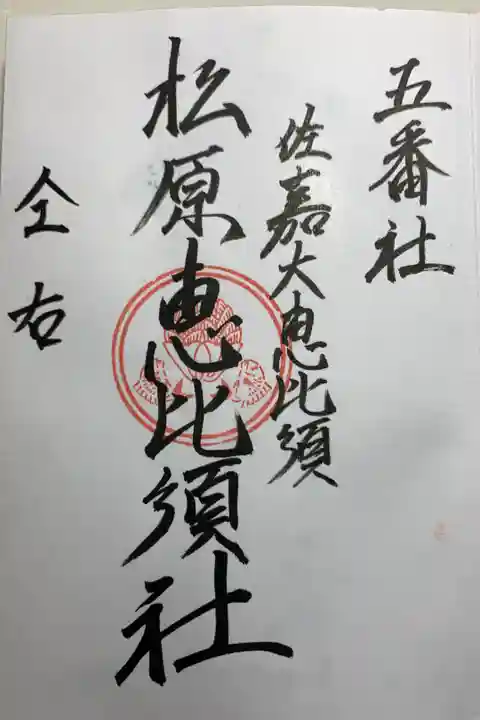 五番社
佐嘉大恵比須
松原恵比須社
仝右